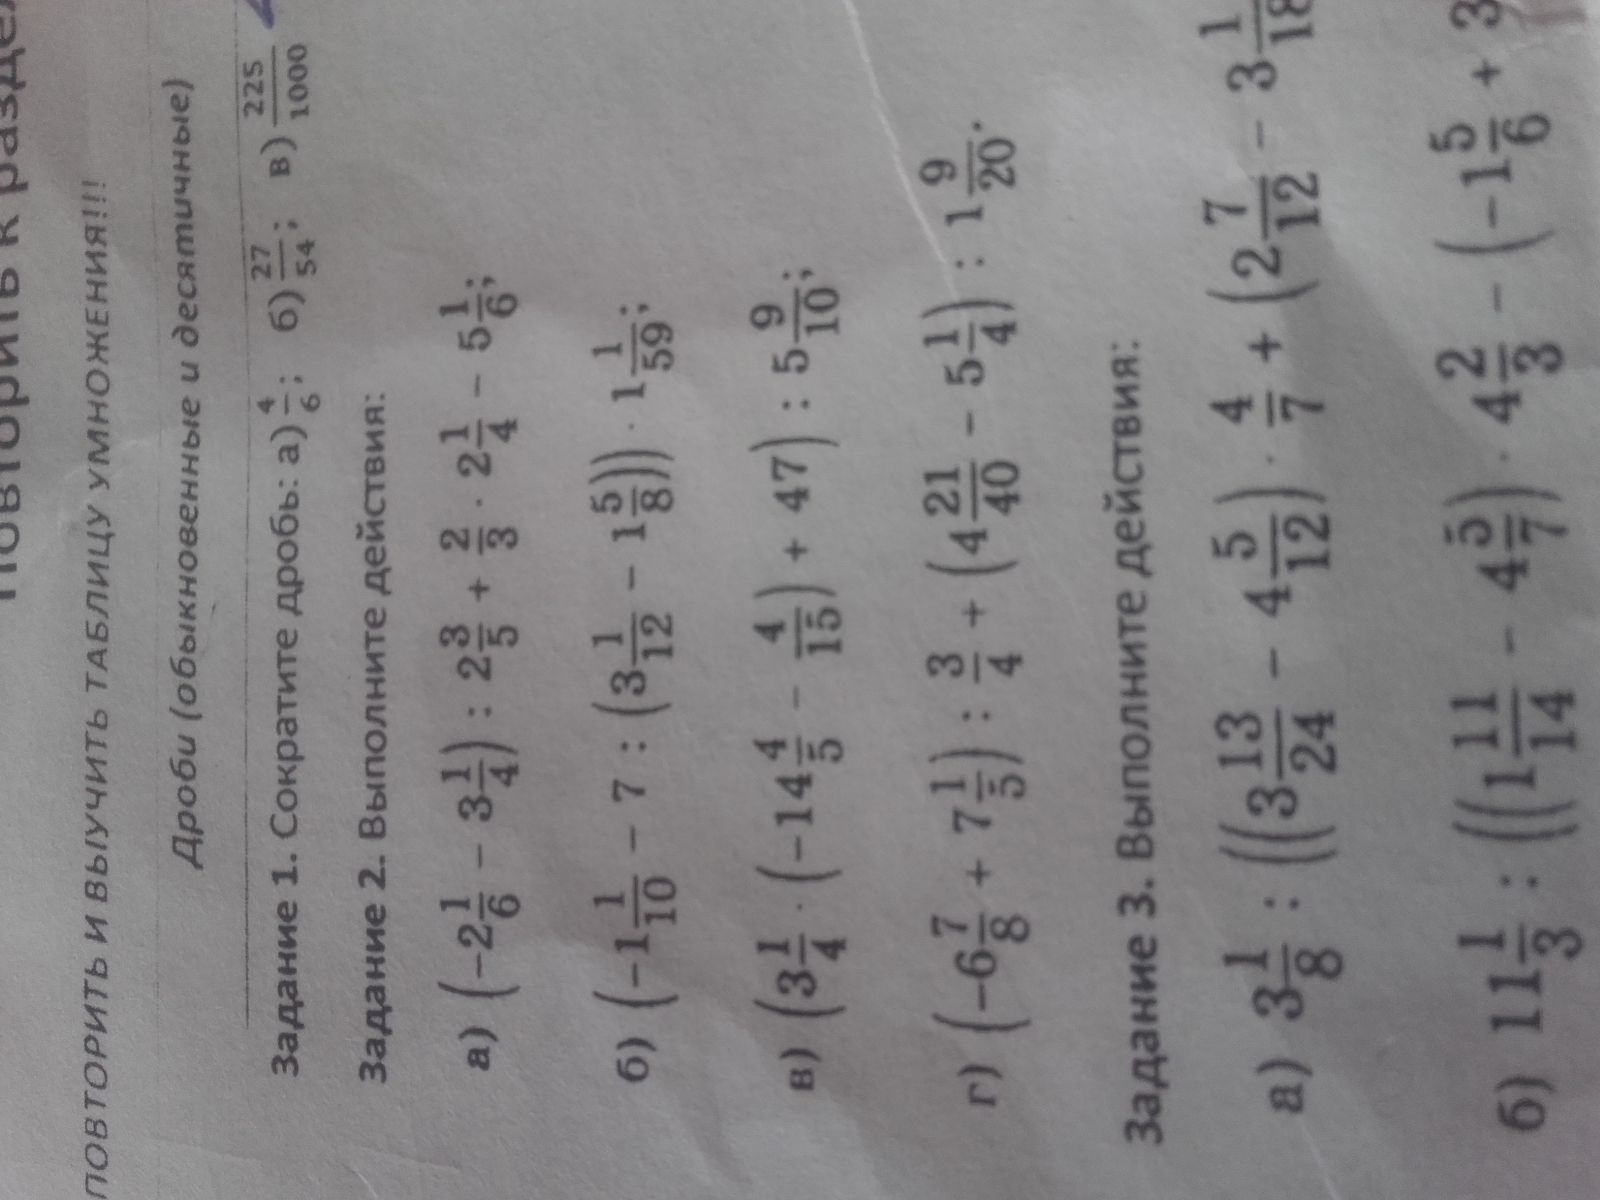 повторить к
ПОВТОРИТЬ И ВЫУЧИТЬ ТАБЛИЦУ УМНОЖЕНИЯ!!!
Дроби (обыкновенные и десятичные)
Задание 1. Сократите дробь: а) 4/6; б) 27/54; в) 225/1000
Задание 2. Выполните действия:
а) (−2 1/6 − 3 1/4) : 2 3/5 + 2/3 · 2 1/4 − 5 1/6;
б) (−1 1/10 − 7 : (3 1/12 − 1 5/8))) · 1 1/59;
в) (3 1/4 · (−14 4/5 − 4/15) + 47) : 5 9/10;
г) (−6 7/8 + 7 1/5) : 3/4 + (4 21/40 − 5 1/4) : 1 9/20.
Задание 3. Выполните действия:
а) 3 1/8 : ((3 13/24 − 4 5/12) · 4/7 + (2 7/12 − 3 1/18
б) 11 1/3 : ((1 11/14 − 4 5/7) · 4 2/3 − (−1 5/6 + 3